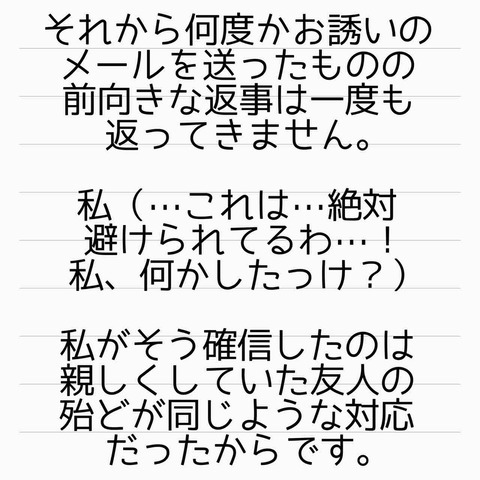 それから何度かお誘いの
メールを送ったものの
前向きな返事は一度も
返ってきません。
私（…これは…絶対
避けられてるわ…！
私、何かしたっけ？）
私がそう確信したのは
親しくしていた友人の
殆どが同じような対応
だったからです。